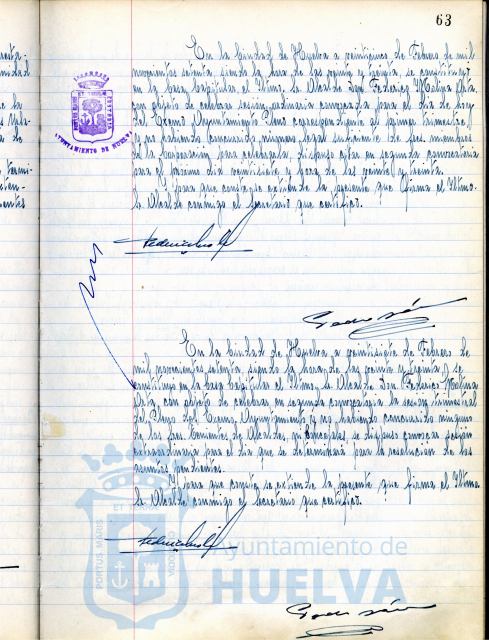 63
En la Ciudad de Huelva a veinticinco de Febrero de mil
novecientos setenta, siendo la hora de las veinte y treinta, se constituyó
en la Casa Capitular el Iltmo. Sr. Alcalde Don Federico Molina Orta,
con objeto de celebrar sesión ordinaria correspondiente para el día de hoy
del Excmo Ayuntamiento Pleno correspondiente al primer trimestre
y no habiendo concurrido número legal suficiente de Sres. miembros
de la Corporación para celebrarla, dispuso citar en segunda convocatoria
para el próximo día veintisiete y hora de las veinte y treinta.
Y para que conste se extiende la presente que firma el Iltmo.
Sr. Alcalde conmigo el Secretario que certifico.
AYUNTAMIENTO DE HUELVA
En la Ciudad de Huelva a veintisiete de Febrero de
mil novecientos setenta, siendo la hora de las veinte y treinta se
constituyó en la Casa Capitular el Iltmo. Sr. Alcalde Don Federico Molina
Orta, con objeto de celebrar en segunda convocatoria la sesión trimestral
del Pleno del Excmo. Ayuntamiento y no habiendo concurrido ninguno
de los Sres. Tenientes de Alcalde, ni Concejales, se dispuso convocar sesión
extraordinaria para el día que se determinará para la resolución de los
asuntos pendientes.
Y para que conste se extiende la presente que firma el Iltmo.
Sr. Alcalde conmigo el Secretario que certifico.
Ayuntamiento de
HUELVA
PORTUS MARIS